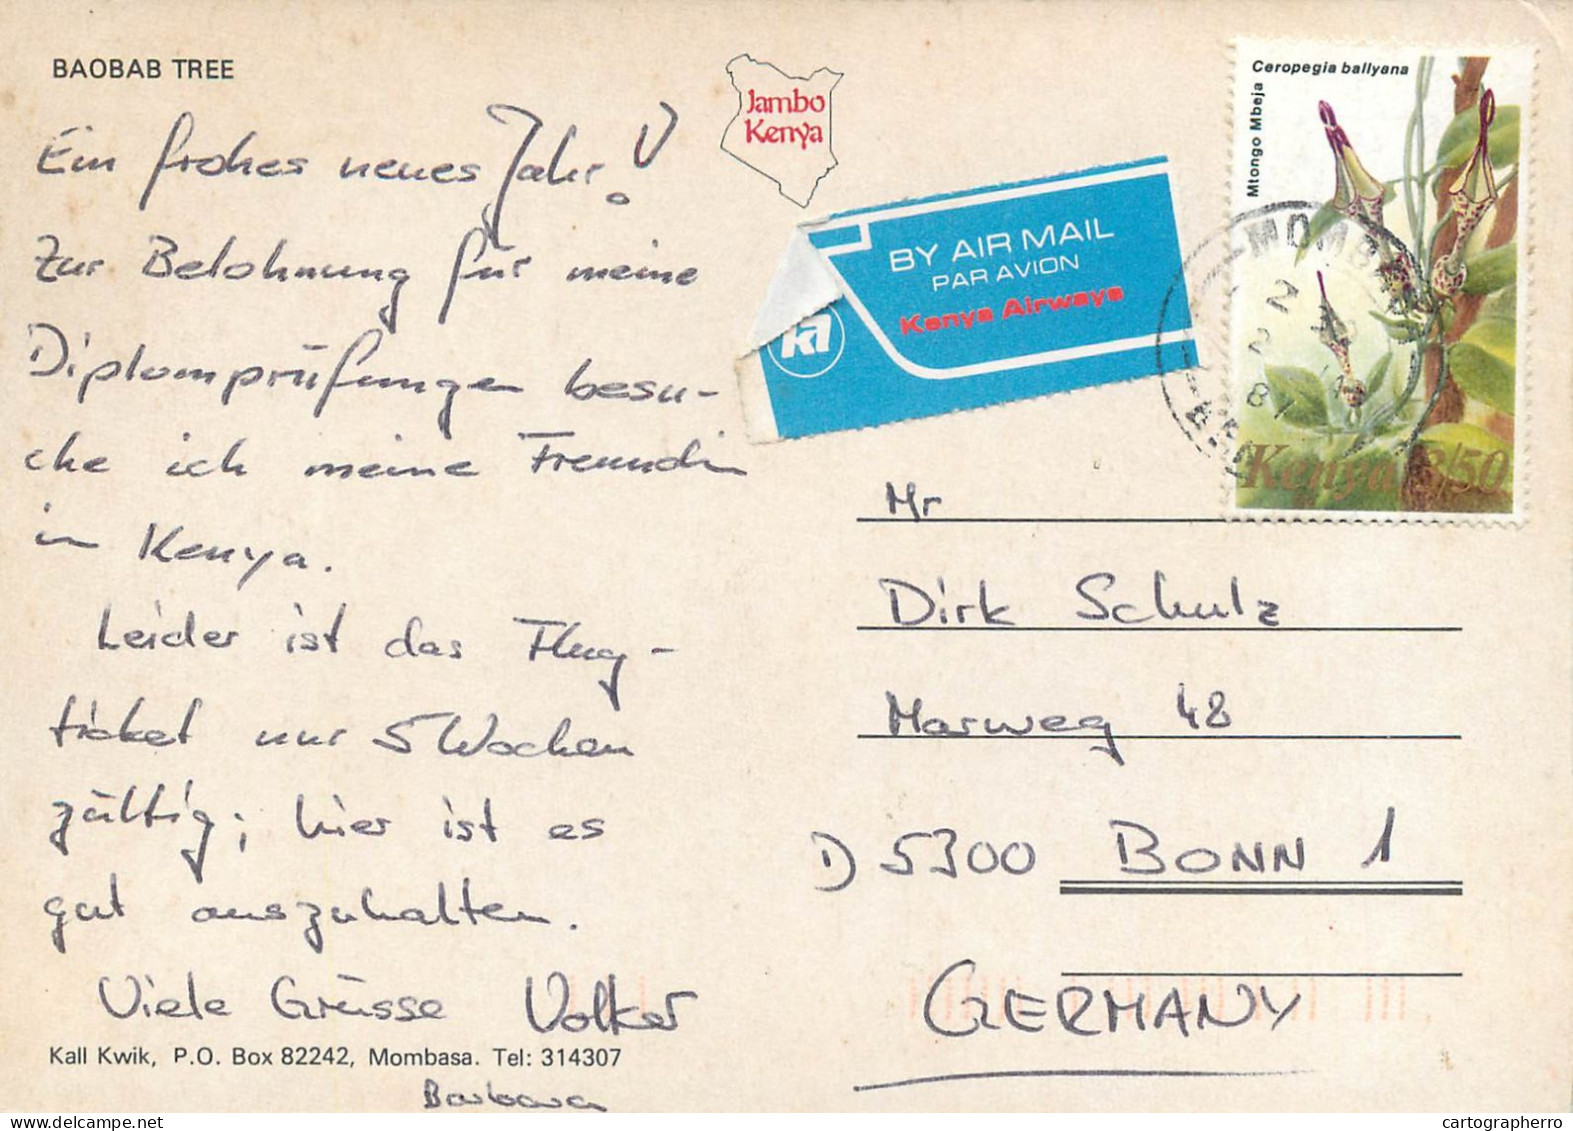 BAOBAB TREE
Ein frohes neues Jahr!
Zur Belohnung für meine
Diplomprüfungen besu-
che ich meine Freundin
in Kenya.
Leider ist das Flug-
ticket nur 5 Wochen
gültig; hier ist es
gut auszuhalten.
Viele Grüsse Volker
Kall Kwik, P.O. Box 82242, Mombasa. Tel: 314307
Barbara
Jambo
Kenya
BY AIR MAIL
PAR AVION
Kenya Airways
Ceropegia ballyana
Mtongo Mbeja
MOMBASA
2
2
87
Kenya 3/50
Mr
Dirk Schulz
Marweg 48
D 5300 BONN 1
GERMANY
cartographerro